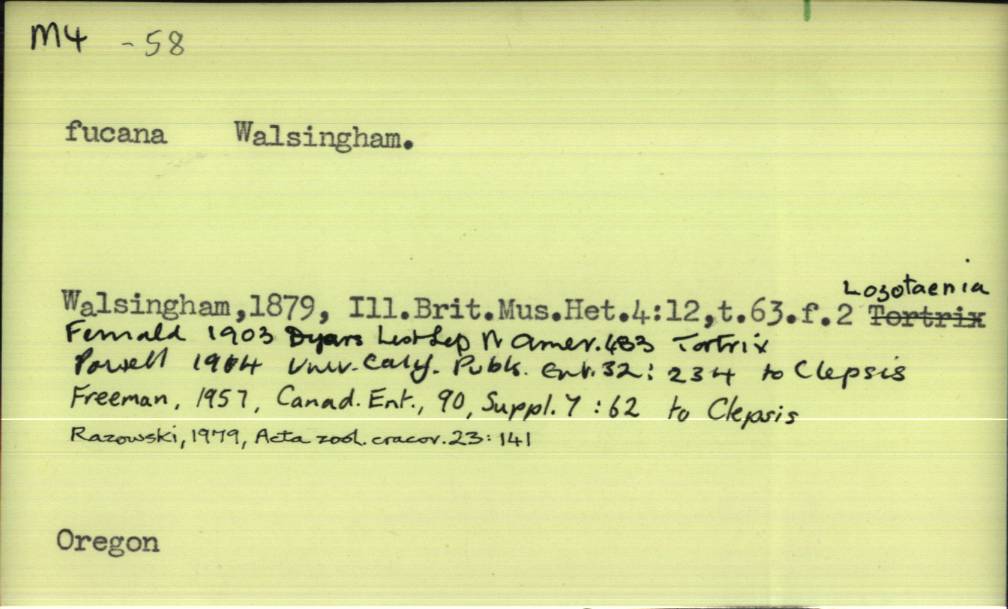 M4 -58
fucana Walsingham.
Lozotaenia
Walsingham,1879, Ill.Brit.Mus.Het.4:12,t.63.f.2 Tortrix
Fernald 1903 Dyars List Lep N Amer. 483 Tortrix
Powell 1964 Univ. Calif. Publs. Ent. 32: 234 to Clepsis
Freeman, 1957, Canad. Ent., 90, Suppl. 7 : 62 to Clepsis
Razowski, 1979, Acta zool. cracov. 23: 141
Oregon